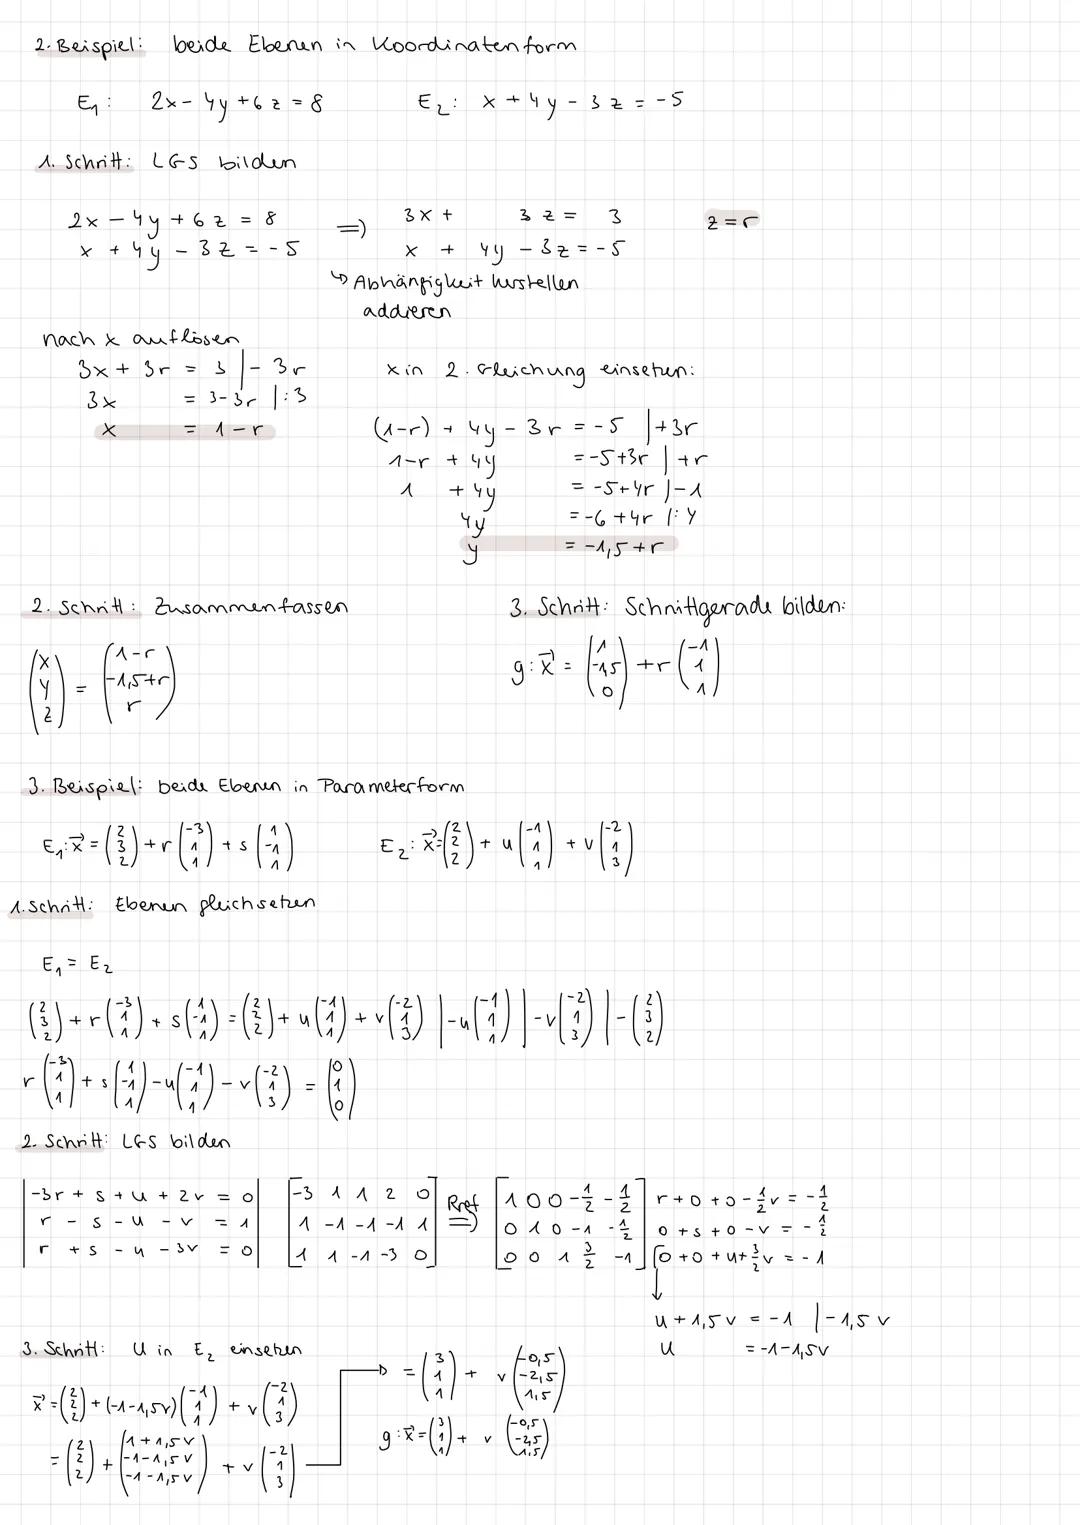 2. Beispiel: beide Ebenen in Koordinatenform
E₁: 2x - 4y + 6z = 8 E₂: x + 4y - 3z = -5
1. Schritt: LGS bilden
2x - 4y + 6z = 8 ⇒ 3x + 3z = 3 z = r
x + 4y - 3z = -5 x + 4y - 3z = -5
↳ Abhängigkeit herstellen
addieren
nach x auflösen
3x + 3r = 3 | - 3r x in 2. Gleichung einsetzen:
3x = 3 - 3r | :3
x = 1 - r (1-r) + 4y - 3r = -5 | +3r
1-r + 4y = -5+3r | +r
1 + 4y = -5+4r | -1
4y = -6 +4r | :4
y = -1,5 + r
2. Schritt: Zusammenfassen 3. Schritt: Schnittgerade bilden:
(x / y / z) = (1-r / -1,5+r / r) g: x⃗ = (1 / -1,5 / 0) + r (-1 / 1 / 1)
3. Beispiel: beide Ebenen in Parameterform
E₁: x⃗ = (2 / 3 / 2) + r (-3 / 1 / 1) + s (1 / -1 / 1) E₂: x⃗ = (2 / 2 / 2) + u (-1 / 1 / 1) + v (-2 / 1 / 3)
1. Schritt: Ebenen gleichsetzen
E₁ = E₂
(2 / 3 / 2) + r (-3 / 1 / 1) + s (1 / -1 / 1) = (2 / 2 / 2) + u (-1 / 1 / 1) + v (-2 / 1 / 3) | -u (-1 / 1 / 1) | -v (-2 / 1 / 3) | - (2 / 3 / 2)
r (-3 / 1 / 1) + s (1 / -1 / 1) - u (-1 / 1 / 1) - v (-2 / 1 / 3) = (0 / 1 / 0)
2. Schritt: LGS bilden
|-3r + s + u + 2v = 0| [-3 1 1 2 0] Rref [1 0 0 -1/2 -1/2] r + 0 + 0 - 1/2 v = -1/2
|r - s - u - v = 1| [1 -1 -1 -1 1] ⇒ [0 1 0 -1 -1/2] 0 + s + 0 - v = -1/2
|r + s - u - 3v = 0| [1 1 -1 -3 0] [0 0 1 3/2 -1] 0 + 0 + u + 3/2 v = -1
u + 1,5v = -1 | -1,5v
u = -1-1,5v
3. Schritt: U in E₂ einsetzen
x⃗ = (2 / 2 / 2) + (-1-1,5v) (-1 / 1 / 1) + v (-2 / 1 / 3)
= (2 / 2 / 2) + (1+1,5v / -1-1,5v / -1-1,5v) + v (-2 / 1 / 3)
→ = (3 / 1 / 1) + v (-0,5 / -2,5 / 1,5)
g: x⃗ = (3 / 1 / 1) + v (-0,5 / -2,5 / 1,5)